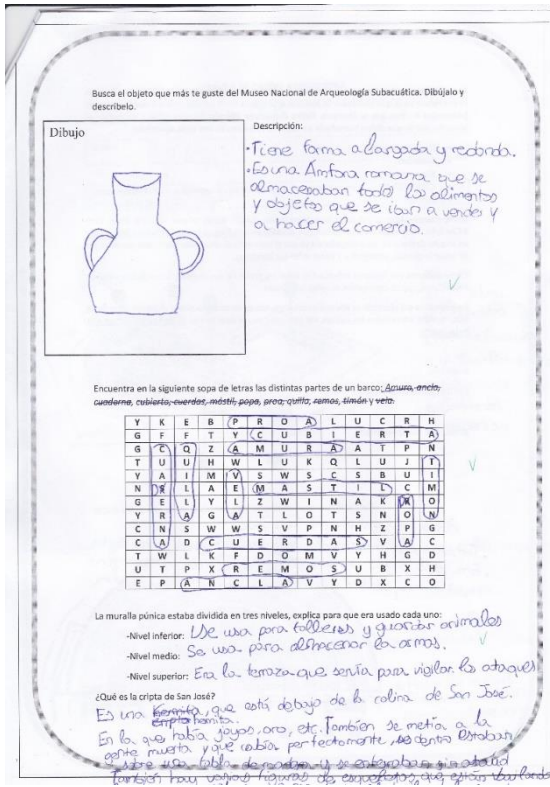 Busca el objeto que más te guste del Museo Nacional de Arqueología Subacuática. Dibújalo y
descríbelo.
Dibujo
Descripción:
•Tiene forma alargada y redonda.
•Es una Ánfora romana que se
almacenaban todos los alimentos
y objetos que se iban a vender y
a hacer el comercio.
Encuentra en la siguiente sopa de letras las distintas partes de un barco: Amura, ancla,
cuaderna, cubierta, cuerdas, mástil, popa, proa, quilla, remos, timón y vela.
Y K E B P R O A L U C R H
G F F T Y C U B I E R T A
G C Q Z A M U R A A T P N
T U U H W L U K Q L U J T
Y A I M V S W S C S B U I
N D L A E M A S T I L C M
G E L Y L Z W I N A K P O
Y R A G A T L O T S N O N
C N S W W S V P N H Z P G
C A D C U E R D A S V A C
T W L K F D O M V Y H G D
U T P X R E M O S U B X H
E P A N C L A V Y D X C O
La muralla púnica estaba dividida en tres niveles, explica para que era usado cada uno:
-Nivel inferior: Se usa para talleres y guardar animales
-Nivel medio: Se usa para almacenar la armas.
-Nivel superior: Era la terraza que servía para vigilar los ataques
¿Qué es la cripta de San José?
Es una, que está debajo de la colina de San José.
En la que había joyas, oro, etc. También se metía a la
gente muerta y que cabían perfectamente, dentro estaban
sobre una tabla de madera y se enterraban sin ataud
También hay varias figuras de esqueletos, que están